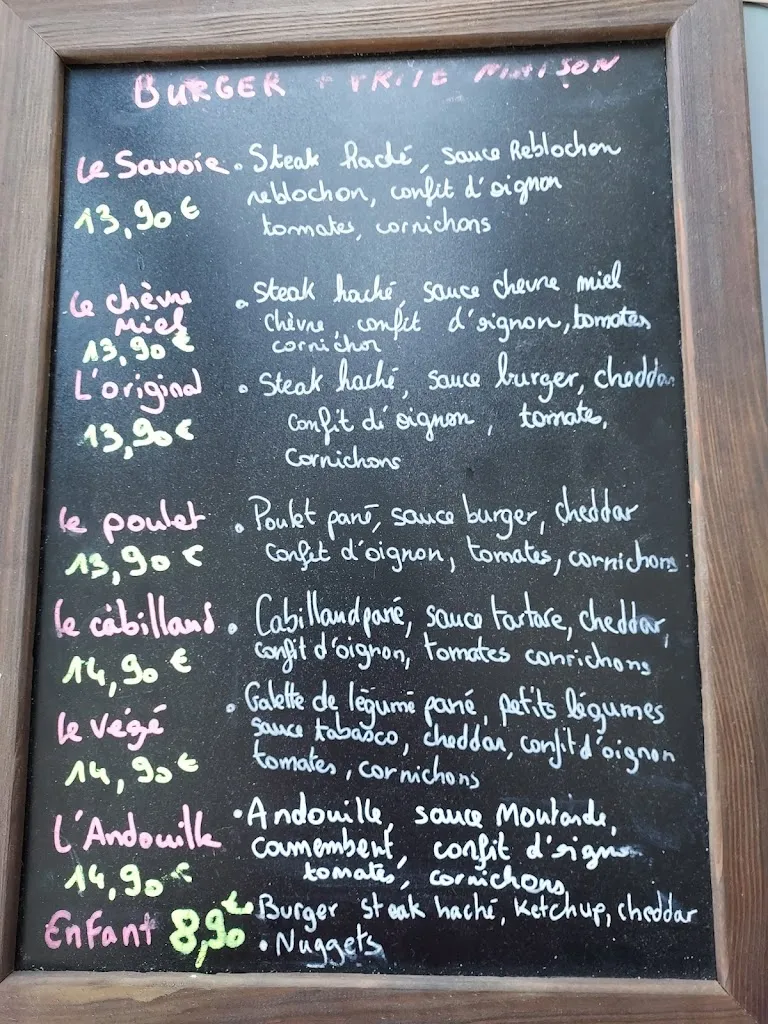 BURGER + FRITE MAISON
Le Savoie • Steak haché, sauce Reblochon
13,90 € reblochon, confit d'oignon
tomates, cornichons
Le chèvre • Steak haché, sauce chevre miel
Miel chèvre, confit d'oignon, tomates
13,90 € cornichon
L'original • Steak haché, sauce burger, cheddar
13,90 € confit d'oignon, tomate,
cornichons
Le poulet • Poulet pané, sauce burger, cheddar
13,90 € confit d'oignon, tomates, cornichons
Le càbilland • Cabilland pané, sauce tartare, cheddar,
14,90 € confit d'oignon, tomates conrichons
Le Végé • Galette de légume pané, petits légumes
sauce tabasco, cheddar, confit d'oignon
14,90 € tomates, cornichons
L'Andouille • Andouille, sauce Moutarde,
camembert, confit d'oignon
14,90 € tomates, cornichons
Enfant 8,90 € • Burger steak haché, Ketchup, cheddar
• Nuggets